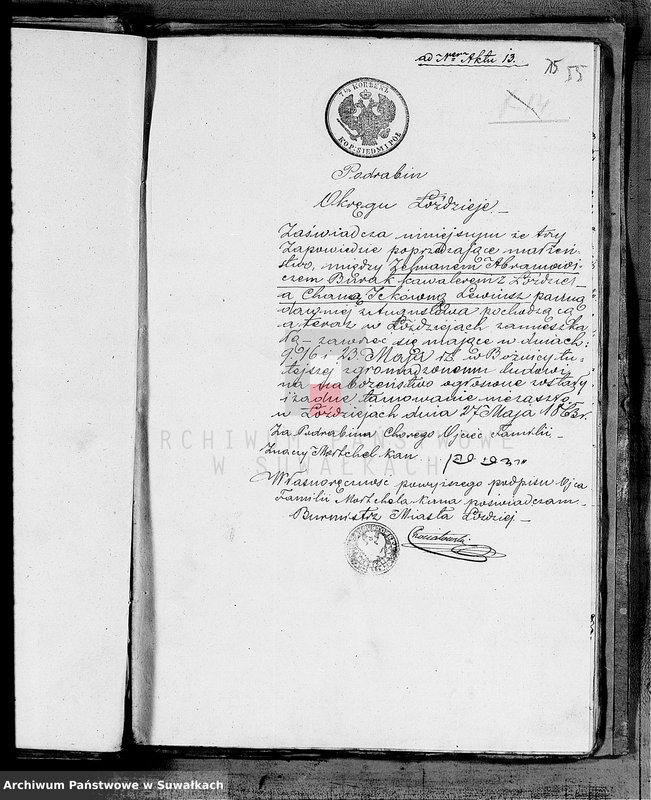 ad Nrum Aktu 13.
75 55
7½ КОПѢЕКЪ
KOP: SIEDM I PÓŁ
Podrabin
Okręgu Łoździeje
Zaświadcza niniejszym że trzy
Zapowiedzie poprzedzające małżeń
stwo, między Zelmanem Abramowi
czem Burak kawalerem z Łoździej
a Chaną Ickówną Lewiusz panną
dawniej z Augustowa pochodzącą
a teraz w Łoździejach zamieszka
łą – zawrzeć się mające w dniach:
9, 16 i 23 Maja rb w Bożnicy tu
tejszej zgromadzonemu ludowi
na nabożeństwo ogłoszone zostały
i żadne tamowanie niezaszło.
w Łoździejach dnia 27 Maja 1863 r.
Za Podrabina Chorego Ojciec Familii
Znaczy Mortchel Kan
Własnoręczność powyższego podpisu Ojca
Familii Mortchela Kana poświadczam
Burmistrz Miasta Łoździej
ARCHIWUM PAŃSTWOWE
W SUWAŁKACH
Archiwum Państwowe w Suwałkach